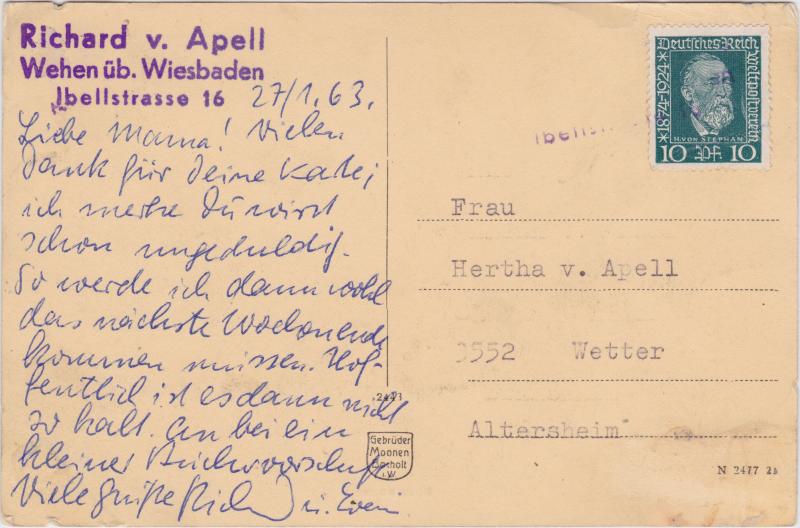 Richard v. Apell
Wehen üb. Wiesbaden
Ibellstrasse 16
27/1.63.
Liebe Mama! Vielen
Dank für deine Karte;
ich merke Du wirst
schon ungeduldig.
So werde ich dann wohl
das nächste Wochenende
kommen müssen. Hof-
fentlich ist es dann nicht
so kalt. Anbei ein
kleiner
Viele Grüße
Deutsches Reich
Weltpostverein
1874-1924
H. VON STEPHAN
10 Pf. 10
Ibells
Frau
Hertha v. Apell
3552 Wetter
Altersheim
2443
Gebrüder
Moonen
Bocholt
i.W.
N 2477 25